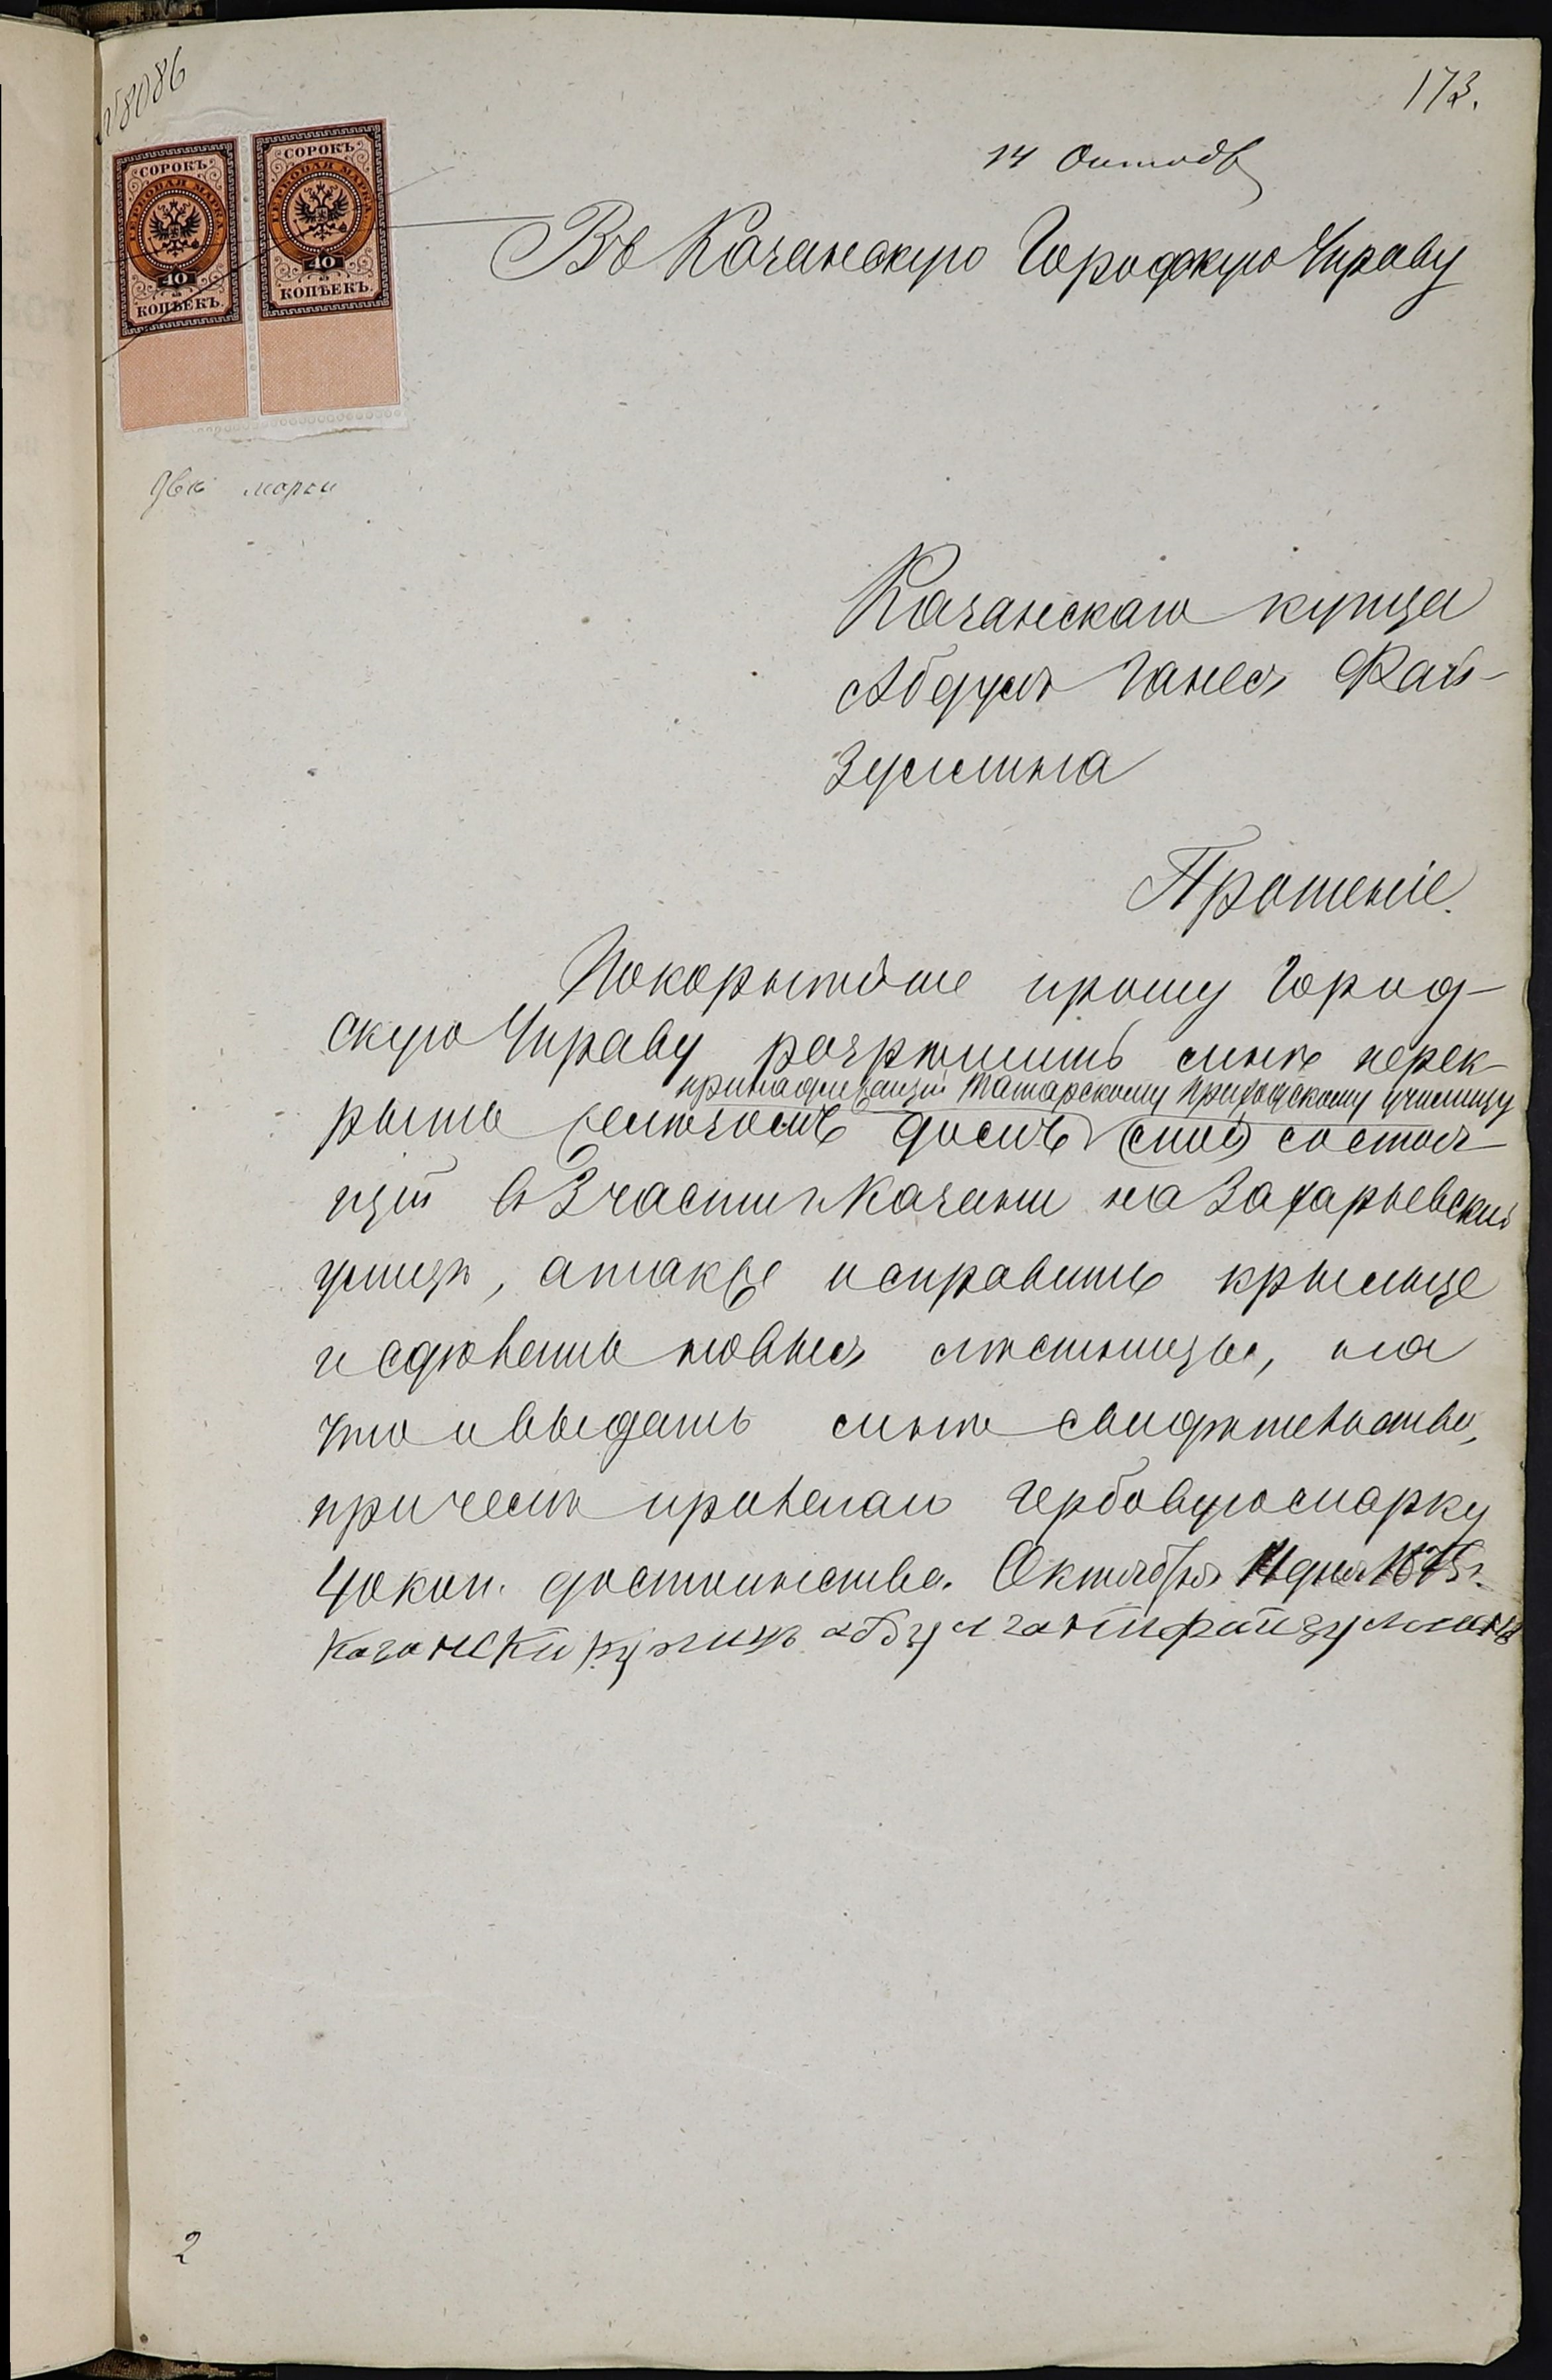 №8086
173.
14 Октяб
СОРОКЪ
ГЕРБОВАЯ МАРКА
40
КОПѢЕКЪ
СОРОКЪ
ГЕРБОВАЯ МАРКА
40
КОПѢЕКЪ
Въ Казанскую Городскую Управу
две марки
Казанскаго купца
Абдулъ Ганея Фай-
зуллина
Прошеніе.
Покорнейше прошу Город-
скую Управу разрѣшить мнѣ перек-
принадлежащій Татарскому приходскому училищу
рыть домъ состоя-
щій в 3 части г. Казани на Захарьевской
улицѣ, а также исправить крыльце
и сделать новыя лѣстницы, на
что и выдать мнѣ свидѣтельство,
при чемъ прилагаю гербовую марку
40 коп. достоинства. Октября 11 дня 1875 г.
Казански купицъ абдулгани файзуллинъ
2